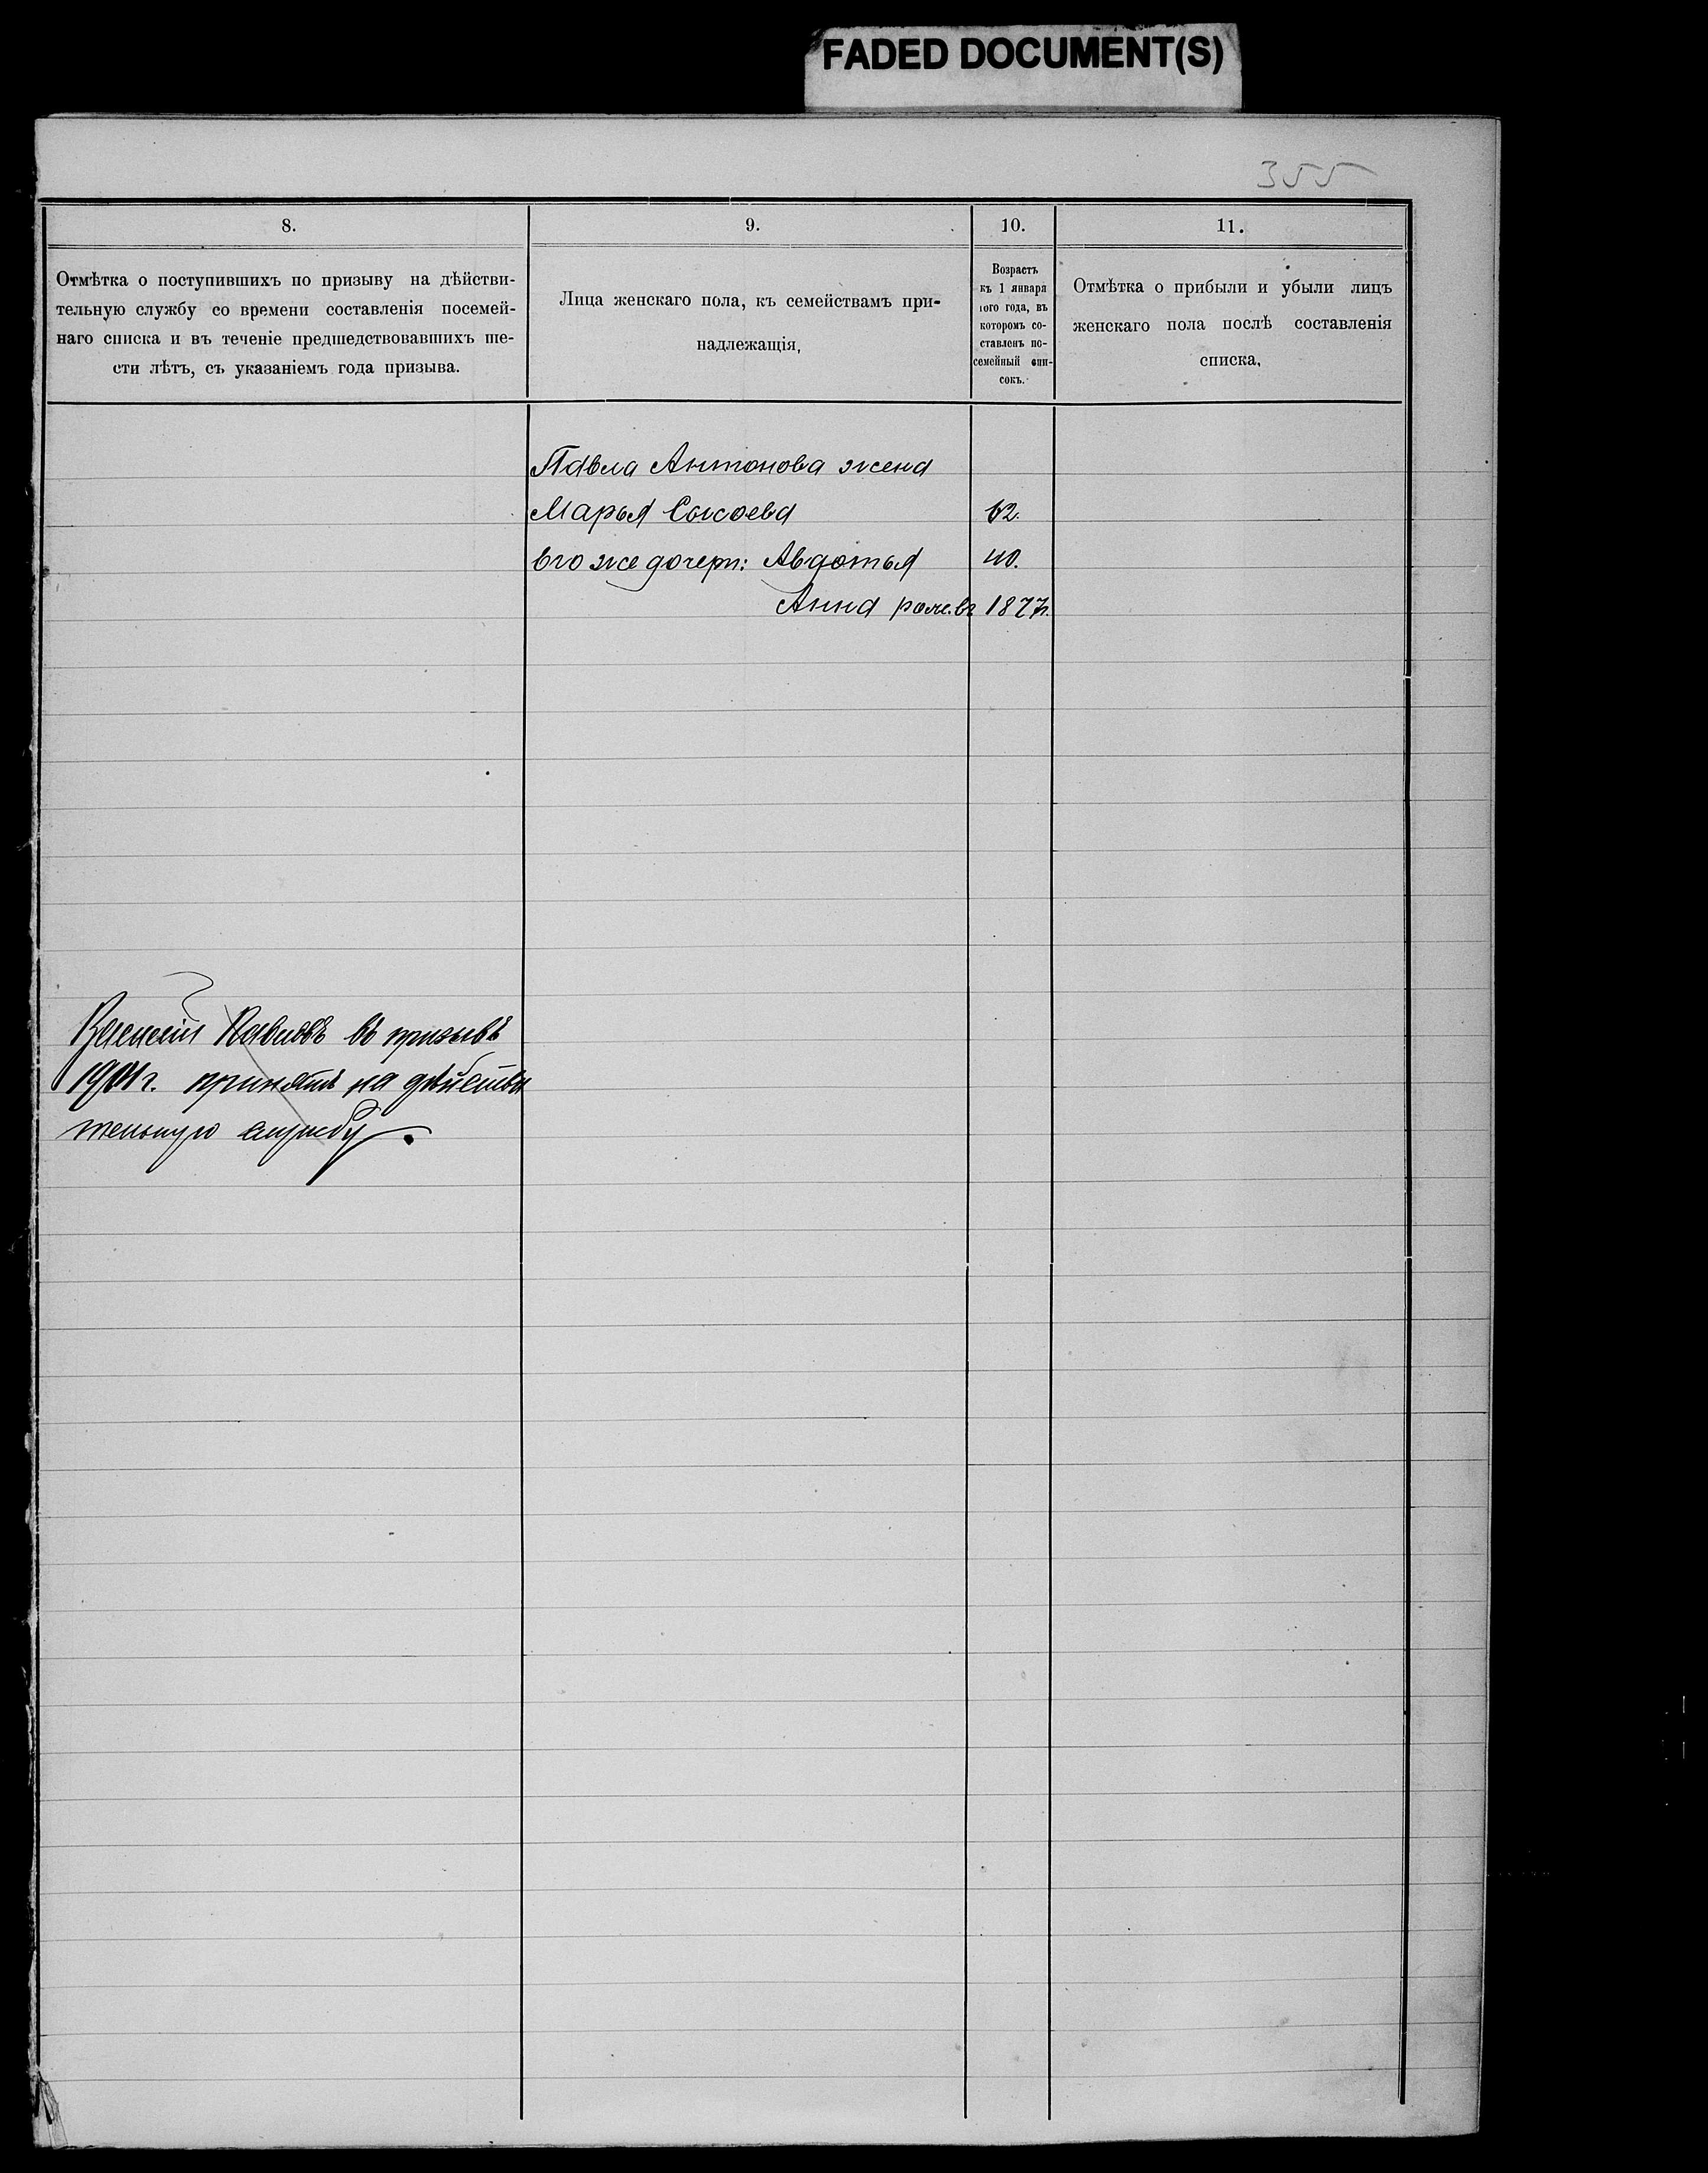 FADED DOCUMENT(S)
355
8.
9.
10.
11.
Отмѣтка о поступившихъ по призыву на дѣйстви-
тельную службу со времени составленія посемей-
наго списка и въ теченіе предшедствовавшихъ ше-
сти лѣтъ, съ указаніемъ года призыва.
Лица женскаго пола, къ семействамъ при-
надлежащія,
Возрастъ
къ 1 января
того года, въ
которомъ со-
ставленъ по-
семейный спи-
сокъ.
Отмѣтка о прибыли и убыли лицъ
женскаго пола послѣ составленія
списка.
Павла Антонова жена
Марья Сысоева 62.
Его же дочери: Авдотья 40.
Анна рож. въ 1877г.
Павловъ въ призывѣ
1901г. принятъ на дѣйстви
тельную службу.